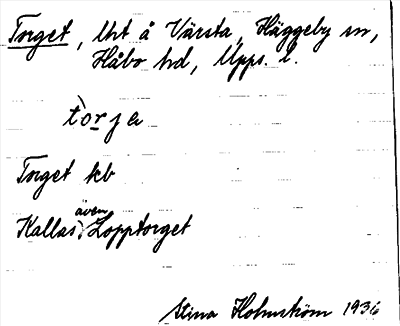 Torget, Urt å Värsta, Häggeby sn,
Håbo hd, Upps. l.
tòrja
Torget kb
Kallas även Lopptorget
Stina Holmström 1936